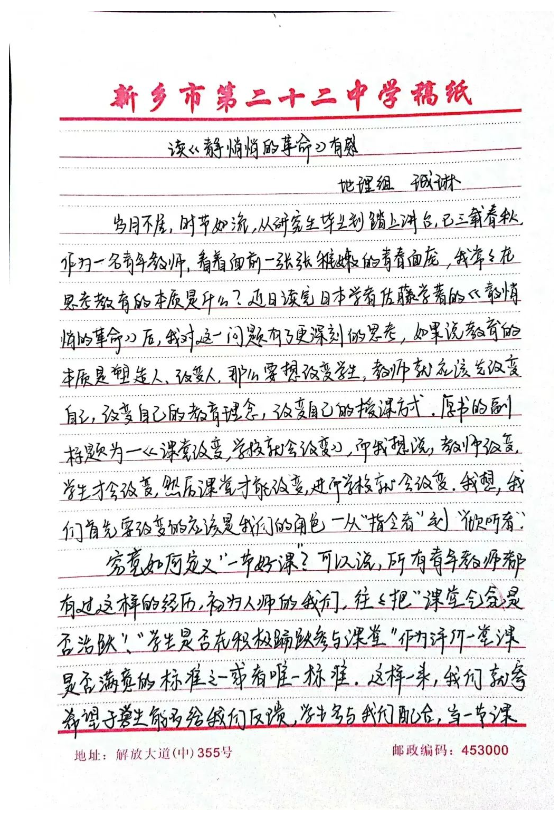 新乡市第二十二中学稿纸
读《静悄悄的革命》有感
地理组
岁月不居，时节如流，从研究生毕业到踏上讲台，已三载春秋，
作为一名青年教师，看着面前一张张稚嫩的青春面庞，我常々在
思考教育的本质是什么？近日读完日本学者佐藤学著的《静悄
悄的革命》后，我对这一问题有了更深刻的思考，如果说教育的
本质是塑造人、改变人，那么要想改变学生，教师就应该先改变
自己，改变自己的教育理念，改变自己的授课方式．原书的副
标题为一《课堂改变，学校就会改变》，而我想说，教师改变，
学生才会改变，然后课堂才能改变，进而学校就会改变．我想，我
们首先要改变的应该是我们的角色一从“指令者”到“倾听者”．
究竟如何定义“一节好课”？可以说，所有青年教师都
有过这样的经历，初为人师的我们，往々把“课堂气氛是
否活跃”、“学生是否在积极踊跃参与课堂”作为评价一堂课
是否满意的标准之一或者唯一标准．这样一来，我们就会
希望于学生能否给我们反馈，学生多与我们配合，当一节课
地址：解放大道(中)355号
邮政编码：453000